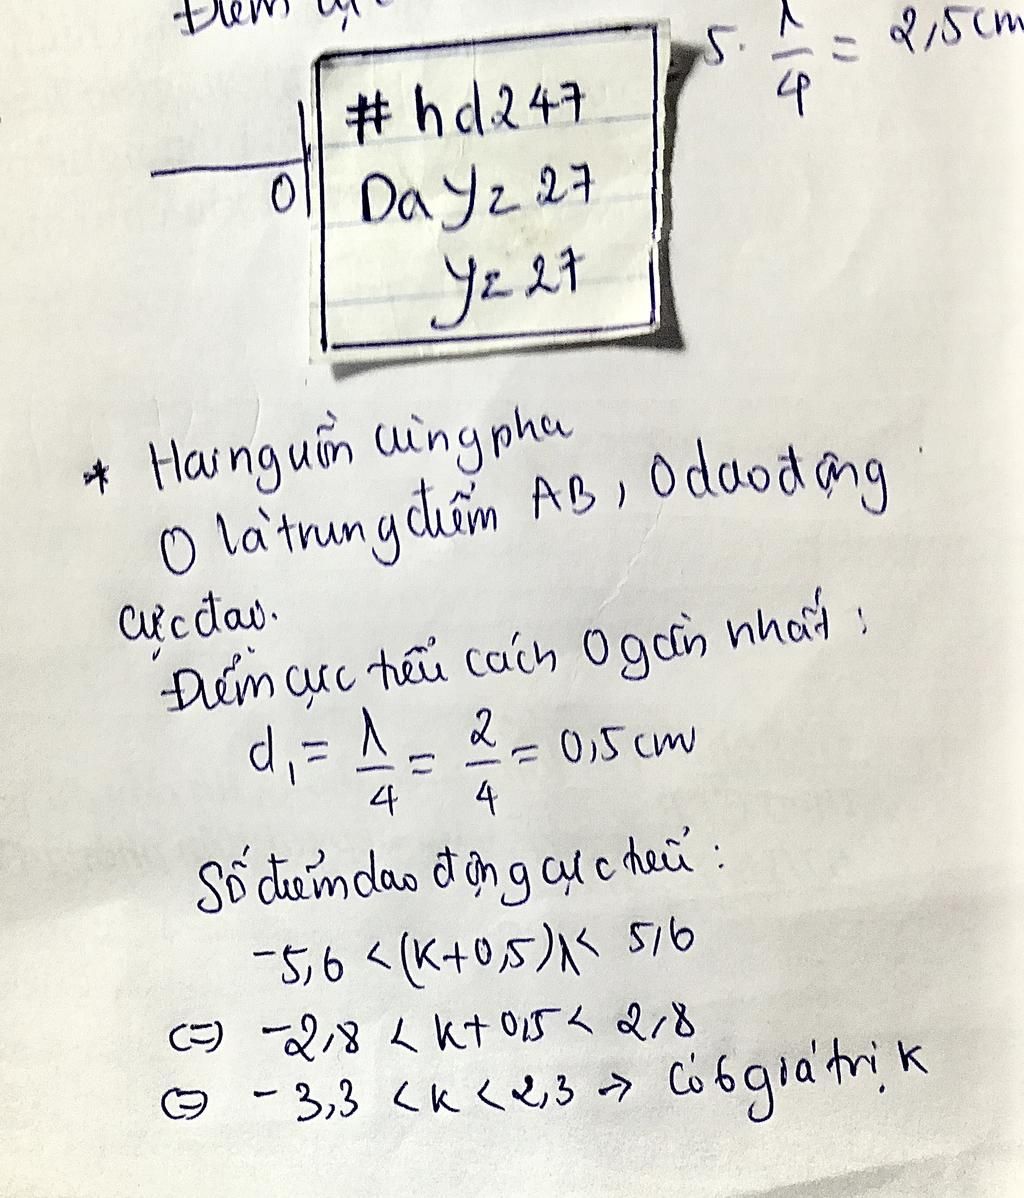 Điểm cự
5. λ/4 = 2,5cm
0
# hd247
Dayz27
yz27
* Hai nguồn cùng pha
O là trung điểm AB, O dao động
cực đại.
Điểm cực tiểu cách O gần nhất:
d₁ = λ/4 = 2/4 = 0,5 cm
Số điểm dao động cực tiểu:
-5,6 < (k+0,5)λ < 5,6
<=> -2,8 < k+0,5 < 2,8
<=> -3,3 < k < 2,3 → Có 6 giá trị k